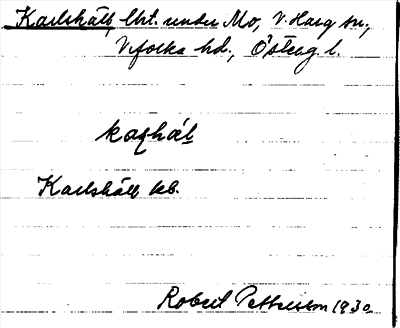 Karlshäll, lht. under Mo, V. Harg sn.,
Vifolka hd., Östergl.
kaɀhäl
Karlshäll kb.
Robert Pettersson 1930